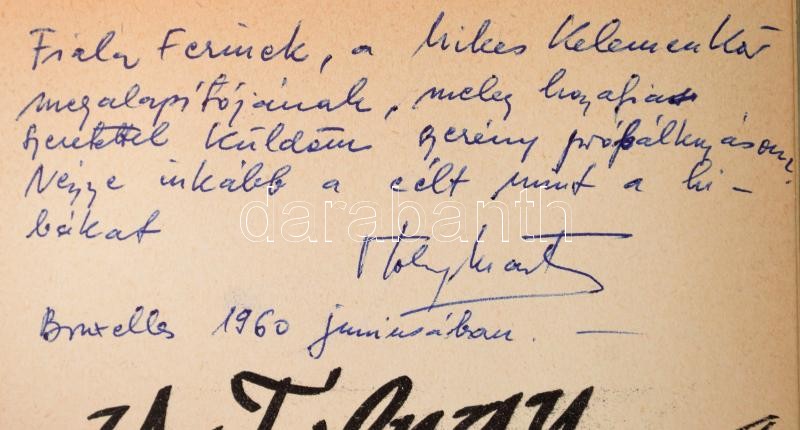 Fiala Ferinek, a Mikes Kelemen Kör
megalapítójának, meleg hazafias
szeretettel küldöm szerény próbálkozásom.
Nézze inkább a célt mint a hi-
bákat
darabanth
Bruxelles 1960 juniusában. —